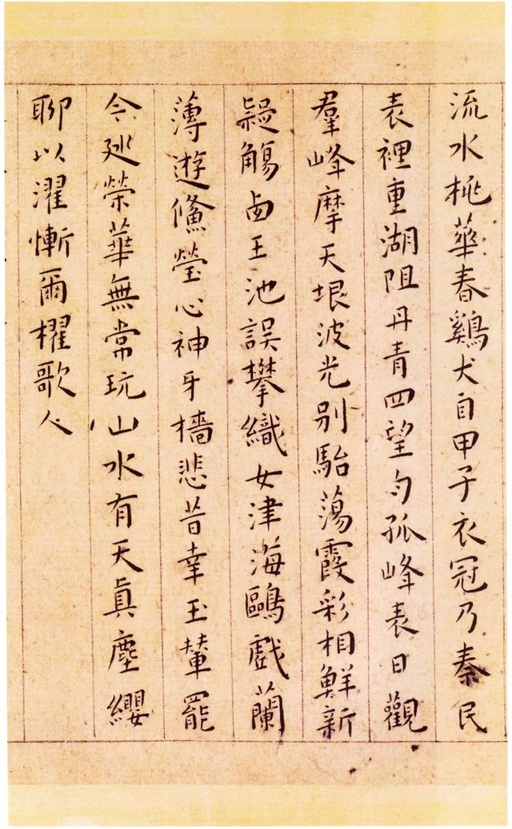 流水桃華春鷄犬自甲子衣冠乃秦民
表裡重湖阻丹青四望勻孤峰表日觀
羣峰摩天垠波光別駘蕩霞彩相鮮新
疑觴王池誤攀織女津海鷗戲蘭
薄遊鯈瑩心神牙檣悲昔幸玉輦罷
今廵榮華無常玩山水有天真塵纓
聊以濯慚爾櫂歌人